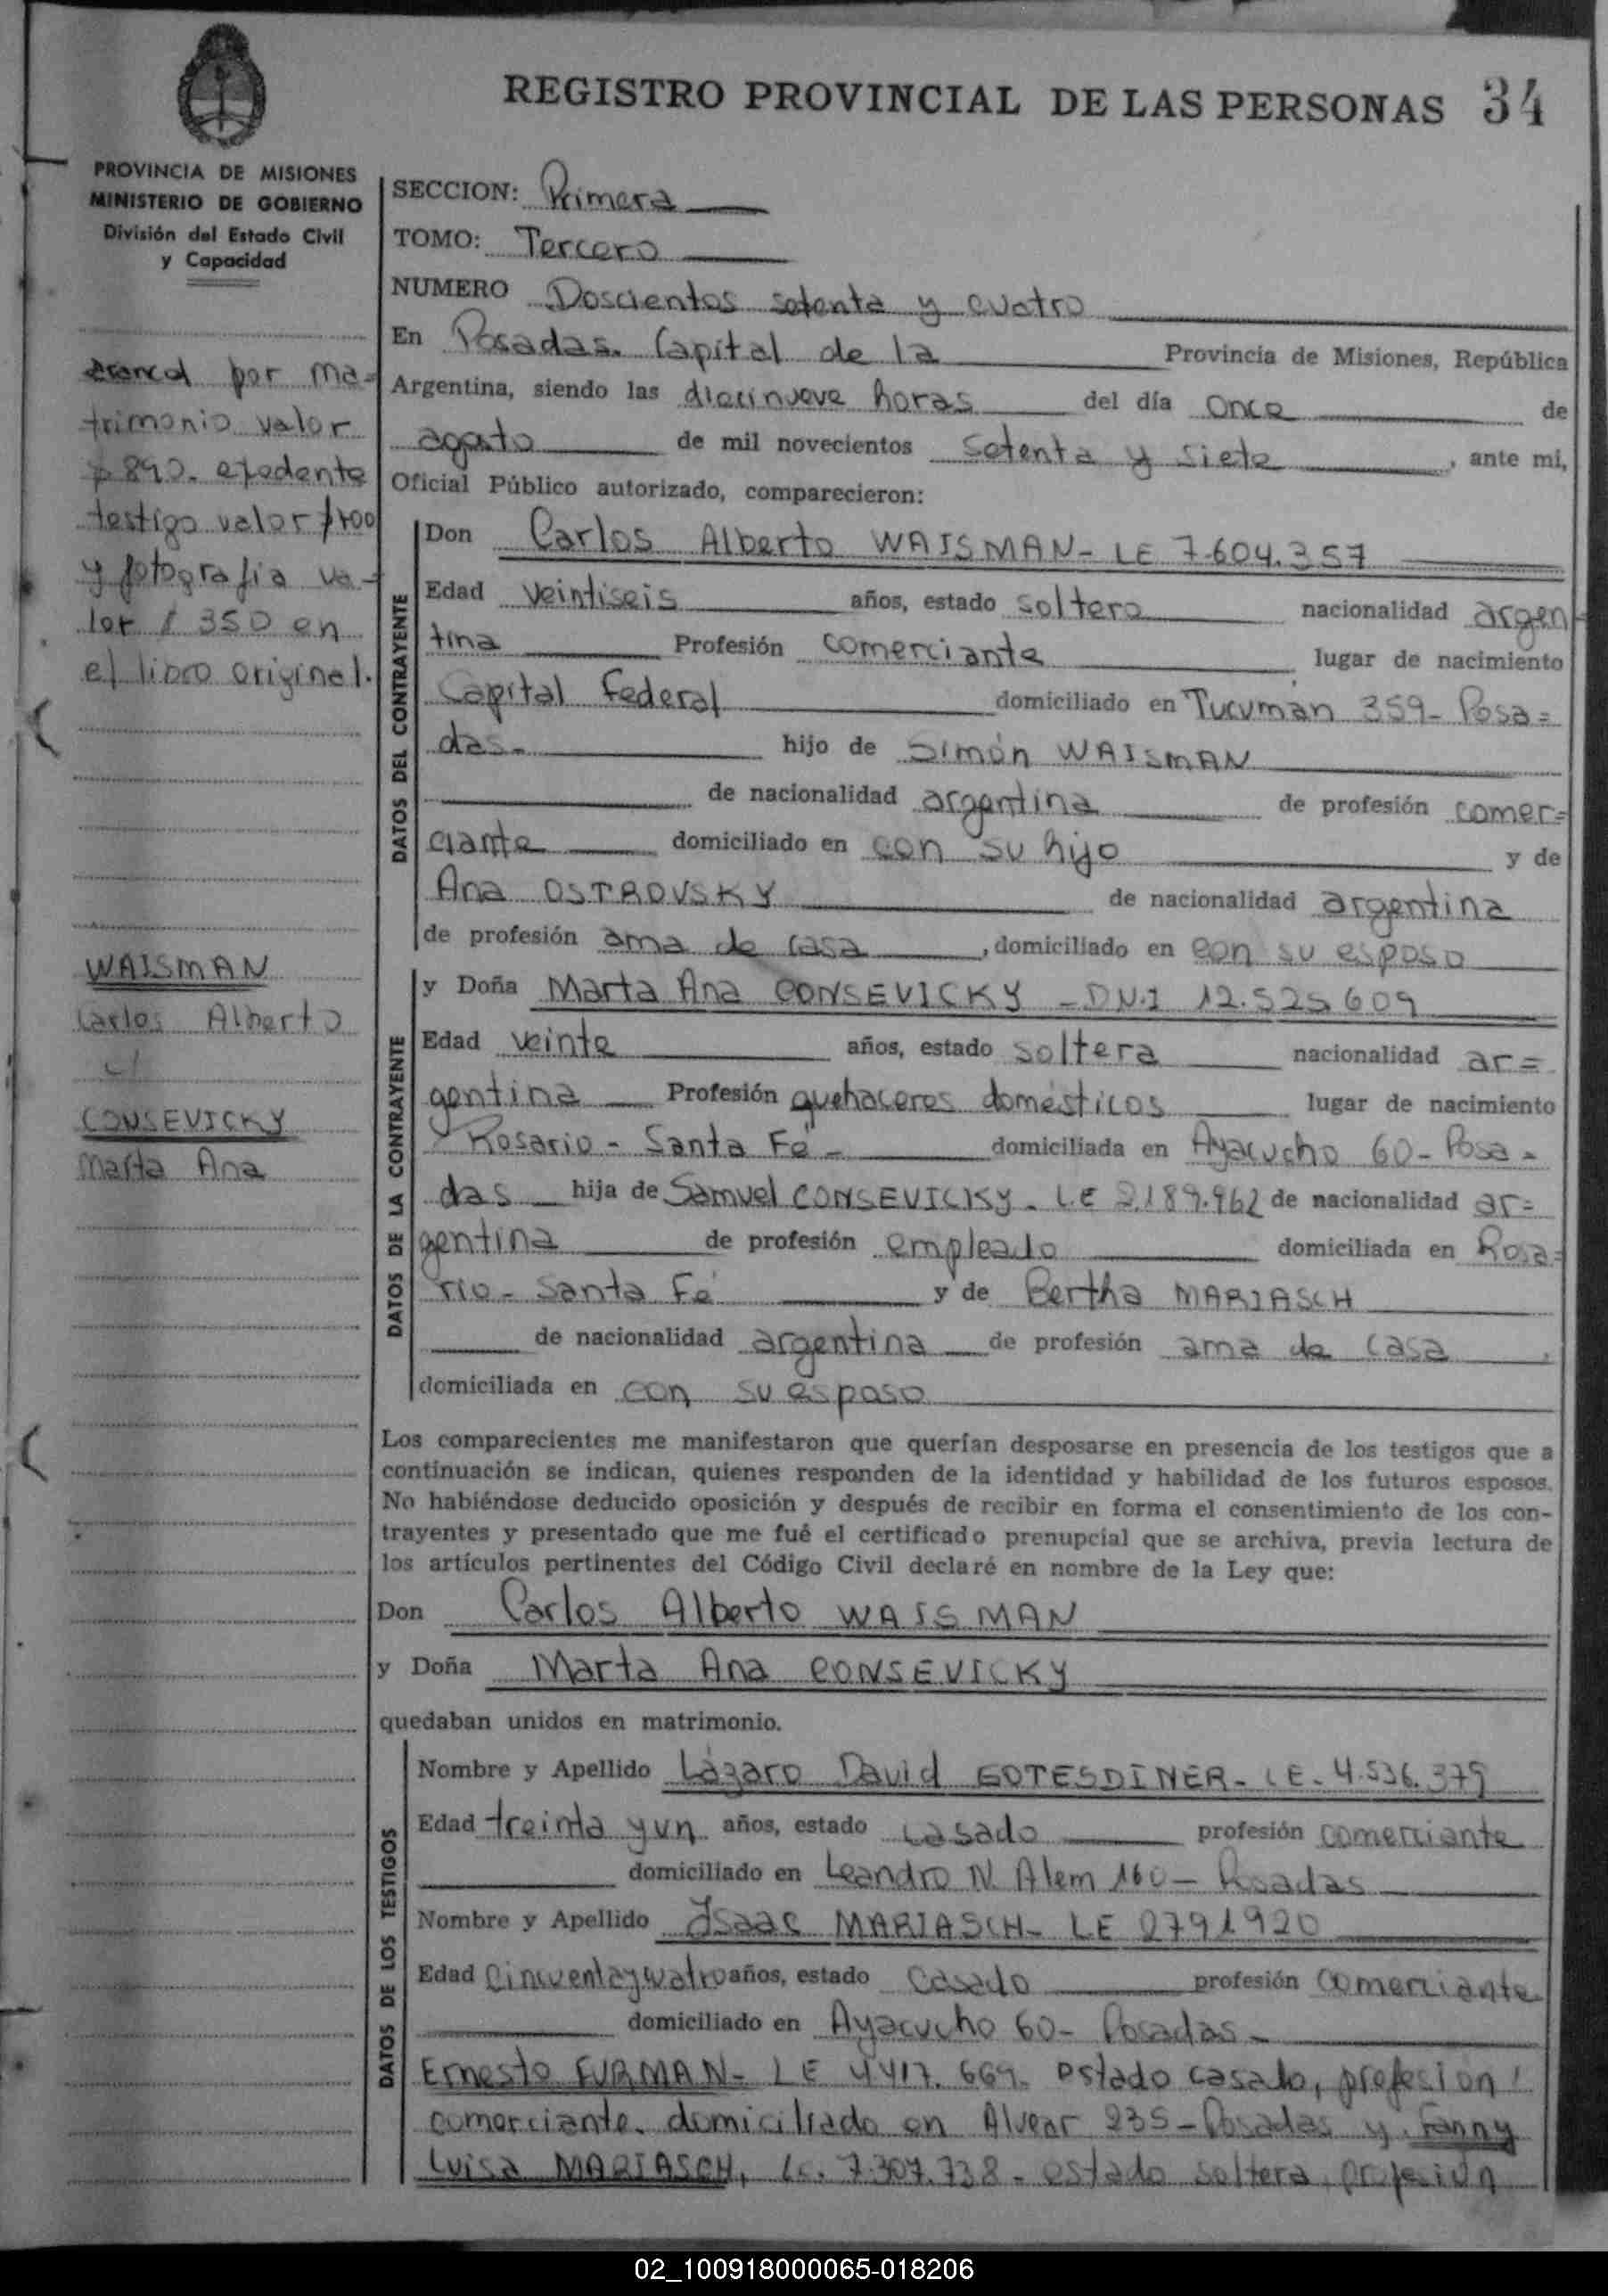 REGISTRO PROVINCIAL DE LAS PERSONAS 34
PROVINCIA DE MISIONES
MINISTERIO DE GOBIERNO
División del Estado Civil
y Capacidad
por ma=
trimonio valor
$ 890. exedente
testigo valor $ 400
y fotografia va-
lor $ 350 en
el libro original.
WAISMAN
Carlos Alberto
c/
CONSEVICKY
Marta Ana
SECCION: Primera
TOMO: Tercero
NUMERO Doscientos setenta y cuatro
En Posadas. Capital de la Provincia de Misiones, República
Argentina, siendo las diecinueve horas del día once de
agosto de mil novecientos setenta y siete, ante mi,
Oficial Público autorizado, comparecieron:
DATOS DEL CONTRAYENTE
Don Carlos Alberto WAISMAN- LE 7.604.357
Edad veintiseis años, estado soltero nacionalidad argen=
tina Profesión comerciante lugar de nacimiento
Capital Federal domiciliado en Tucumán 359- Posa=
das- hijo de Simón WAISMAN
de nacionalidad argentina de profesión comer=
ciante domiciliado en con su hijo y de
Ana OSTROVSKY de nacionalidad argentina
de profesión ama de casa, domiciliado en con su esposo
DATOS DE LA CONTRAYENTE
y Doña Marta Ana CONSEVICKY - DN.I 12.525.609
Edad veinte años, estado soltera nacionalidad ar=
gentina Profesión quehaceres domésticos lugar de nacimiento
Rosario - Santa Fé - domiciliada en Ayacucho 60- Posa-
das hija de Samuel CONSEVICKY. L.E 2.189.962 de nacionalidad ar=
gentina de profesión empleado domiciliada en Rosa=
rio- Santa Fé y de Bertha MARIASCH
de nacionalidad argentina de profesión ama de casa,
domiciliada en con su esposo
Los comparecientes me manifestaron que querían desposarse en presencia de los testigos que a
continuación se indican, quienes responden de la identidad y habilidad de los futuros esposos.
No habiéndose deducido oposición y después de recibir en forma el consentimiento de los con-
trayentes y presentado que me fué el certificado prenupcial que se archiva, previa lectura de
los artículos pertinentes del Código Civil declaré en nombre de la Ley que:
Don Carlos Alberto WAISMAN
y Doña Marta Ana CONSEVICKY
quedaban unidos en matrimonio.
DATOS DE LOS TESTIGOS
Nombre y Apellido Lázaro David GOTESDINER- LE- 4.536.379
Edad treinta y un años, estado casado profesión comerciante
domiciliado en Leandro N. Alem 160- Posadas
Nombre y Apellido Isaac MARIASCH- LE 2791920
Edad Cincuenta y cuatro años, estado casado profesión comerciante
domiciliado en Ayacucho 60- Posadas-
Ernesto FURMAN- LE 4417.669. estado casado, profesion
comerciante. domiciliado en Alvear 235- Posadas y Fanny
Luisa MARIASCH, Lc. 7.307.738- estado soltera, profesión
02_100918000065-018206